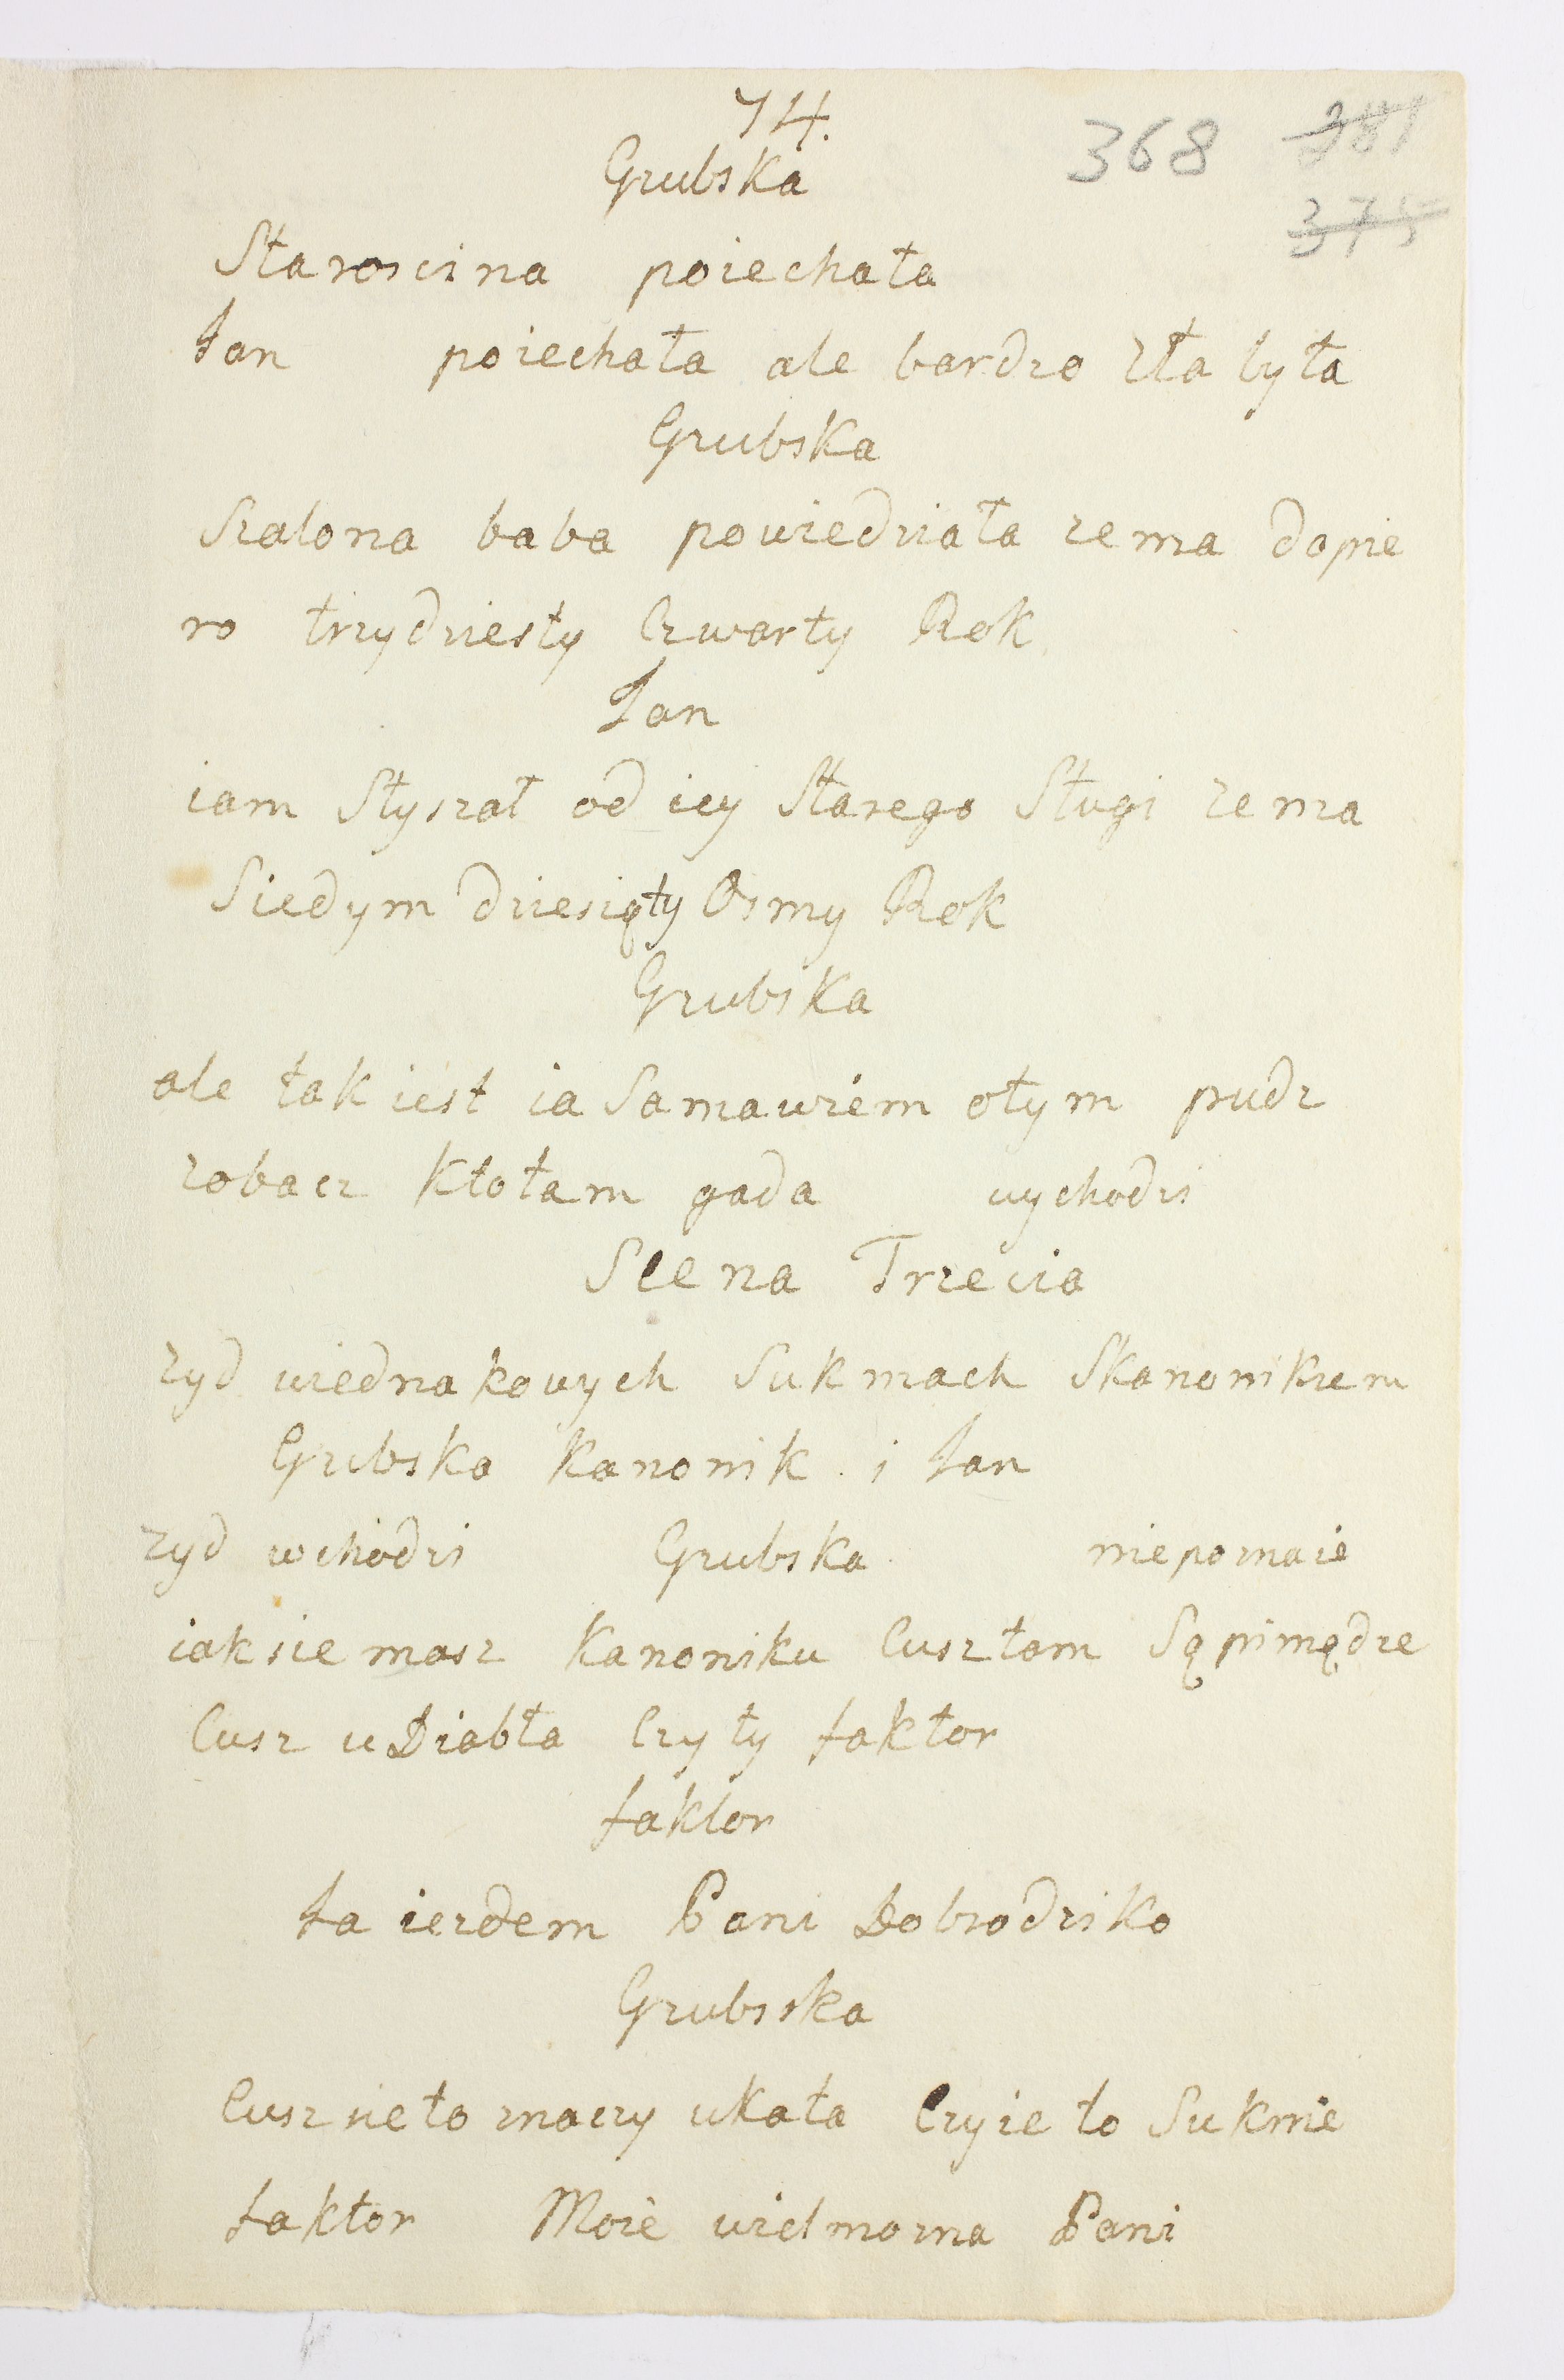 74.
368 381
375
Grubska
Staroscina poiechała
Jan poiechała ale bardzo zła była
Grubska
Szalona baba powiedziała ze ma dopie
ro trzydziesty Czwarty Rok
Jan
iam Słyszał od iey Starego Sługi ze ma
Siedym dziesiąty Osmy Rok
Grubska
ale tak iest ia Sama wiem otym pudz
zobacz Ktotam gada wychodzi
Scena Trzecia
zyd wiednakowych Sukniach Skanonikiem
Grubska Kanonik i Jan
zyd wchodzi Grubska niepoznaie
iaksie masz Kanoniku Cusz tam Są pimądze
Cusz u Diabła Czy ty faktor
faktor
Ja iezdem Pani Dobrodziko
Grubska
Cusz sie to znaczy u Kata Czyie to Suknie
faktor Moie wielmozna Pani